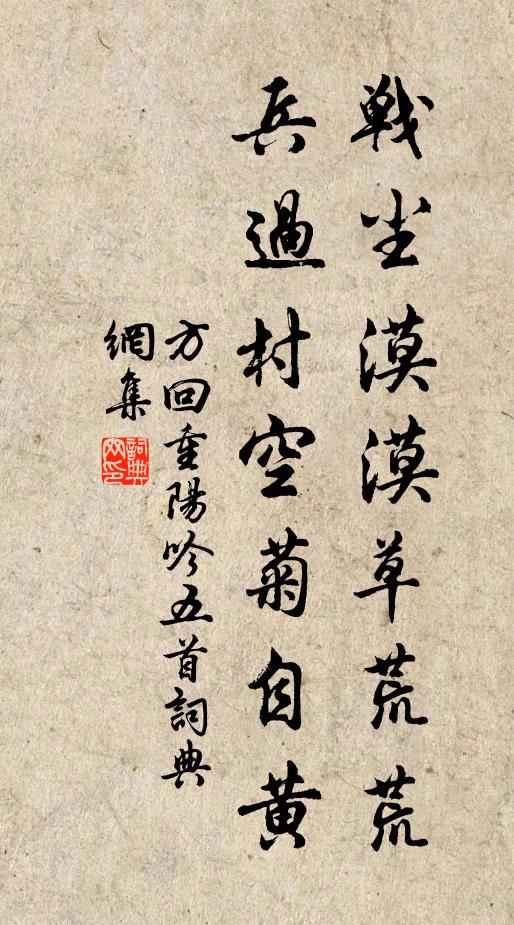 戰尘漠漠草荒荒
兵過村空菊自黄
方回重陽吟五首詞典
網集
詞典网印